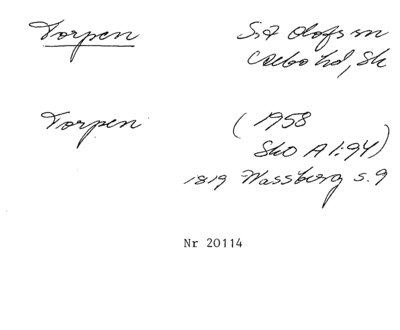 Torpen S:t Olofs sn
Albo hd, Sk
Torpen (1958
SkO A1:94)
1819 Wassberg s. 9
Nr 20114